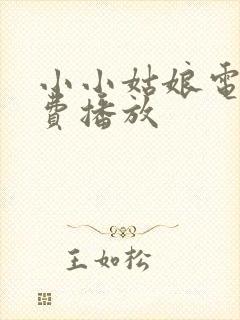 小小姑娘電
費播放
王如松